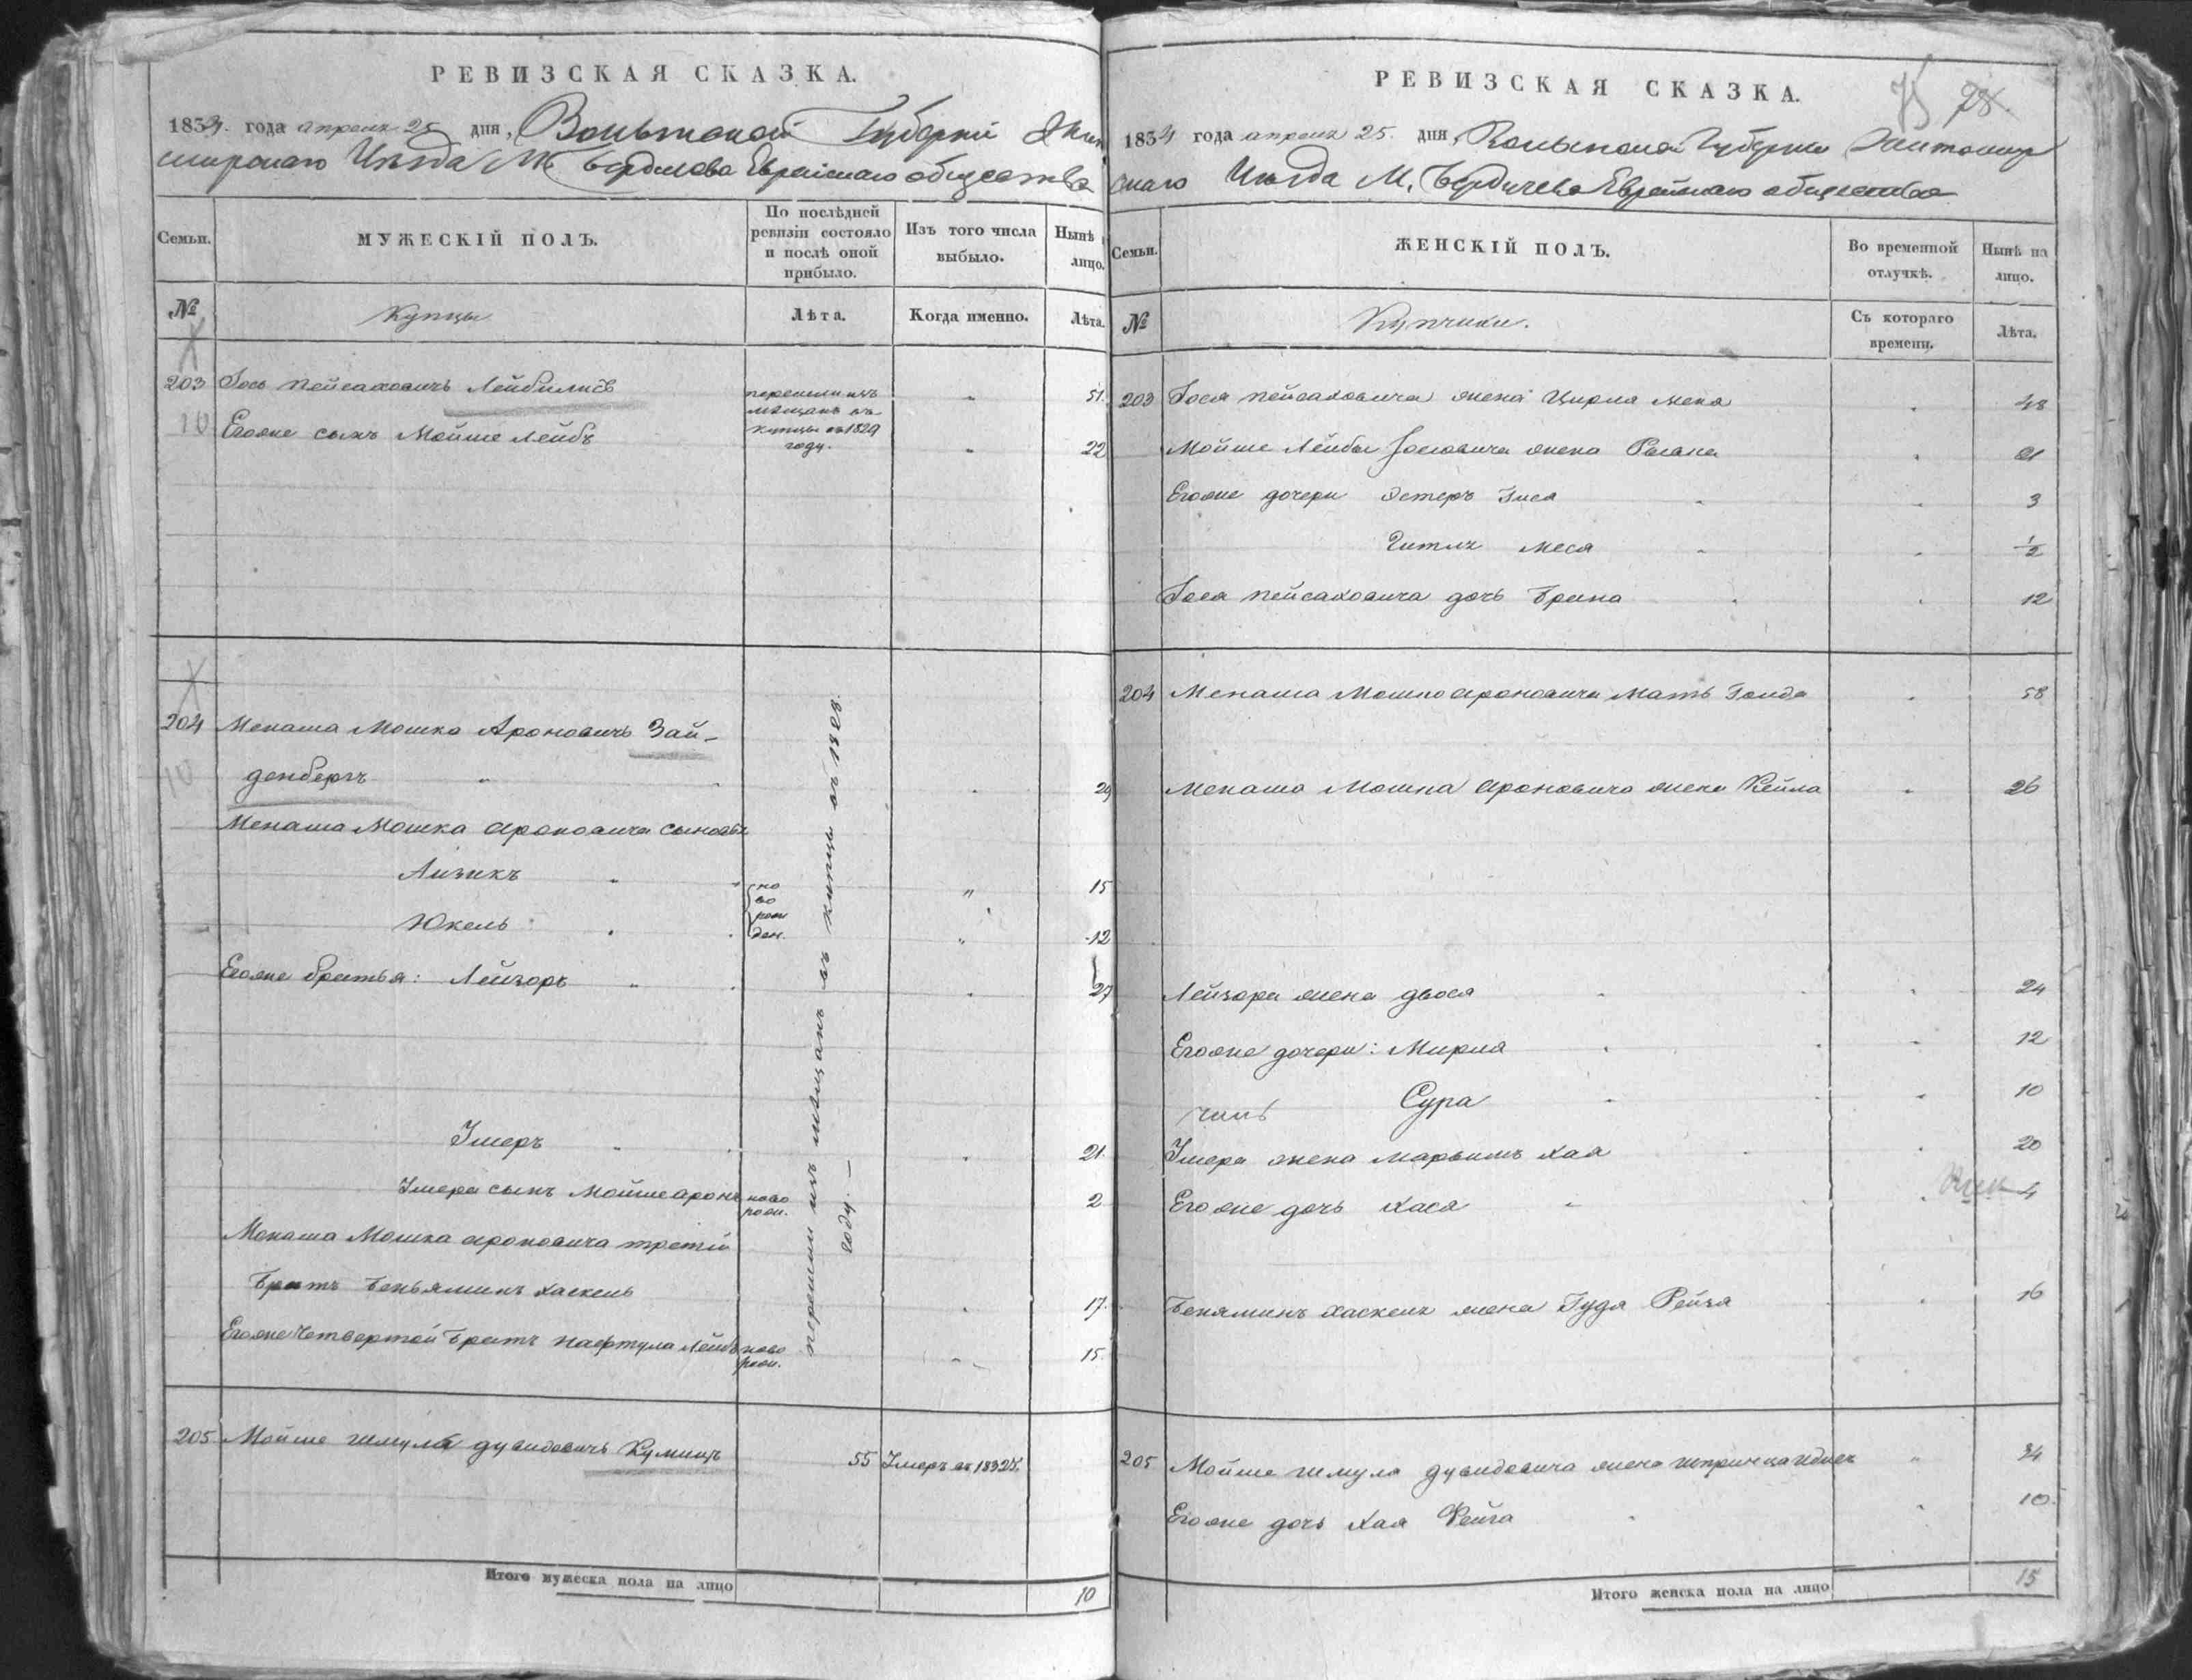 РЕВИЗСКАЯ СКАЗКА.
1834. года апреля 25 дня, Волынской Губерніи Жит
мирскаго Уѣзда М. Бердичева Еврейскаго общества
Семьи.
МУЖЕСКІЙ ПОЛЪ.
По послѣдней
ревизіи состояло
и послѣ оной
прибыло.
Изъ того числа
выбыло.
Нынѣ
лицо.
№
Купцы
Лѣта.
Когда именно.
Лѣта.
203 Іось Пейсаховичъ 51.
перешли изъ
мѣщанъ въ
купцы въ 1829
году.
10 Егоже сынъ Мойше Лейбъ 22
204 Менаша Мошко Ароновичъ Зай-
10 денбергъ 29
Менаша Мошка Ароновича сыновья
Айзикъ 15
Юкель 12
но
во
рож
ден.
Егоже братья: Лейзоръ 27
Імеръ 21
Імера сынъ Мойше Аронъ ново
рож. 2
Менаша Мошка Ароновича третій
братъ Беньяминъ Хаскель 17.
Егоже четвертой братъ Нафтула Лейбъ ново
рож. 15.
перешли изъ мѣщанъ въ купцы въ 1828.
году.—
205. Мойше Шмуль Дувидовичъ 55 Умеръ въ 1832
Итого мужеска пола на лицо 10
РЕВИЗСКАЯ СКАЗКА.
78.
1834 года апреля 25. дня, Волынской Губерніи Житомир
скаго Уѣзда М. Бердичева Еврейскаго общества
Семьи.
ЖЕНСКІЙ ПОЛЪ.
Во временной
отлучкѣ.
Нынѣ на
лицо.
№
Купчихи.
Съ котораго
времени.
Лѣта.
203 Іося Пейсаховича жена Цирля 48
Мойше Лейбы Іосіовича жена 21
Егоже дочери Эстеръ 3
Гитля Меся ½
Іося Пейсаховича дочь Брана 12
204 Менаша Мошко Ароновича мать Голда 58
Менаша Мошка Ароновича жена Кейла 26
Лейзора жена Двося 24
Егоже дочери: Мирля 12
Сура 10
Імера жена Марьямъ Хая 20
Егоже дочь Хася 4
Бенямина Хаскеля жена Гуда Рейза 16
205 Мойше Шмуля Дувидовича жена Шпринца 34
Егоже дочь Хая Фейга 10.
Итого женска пола на лицо 15